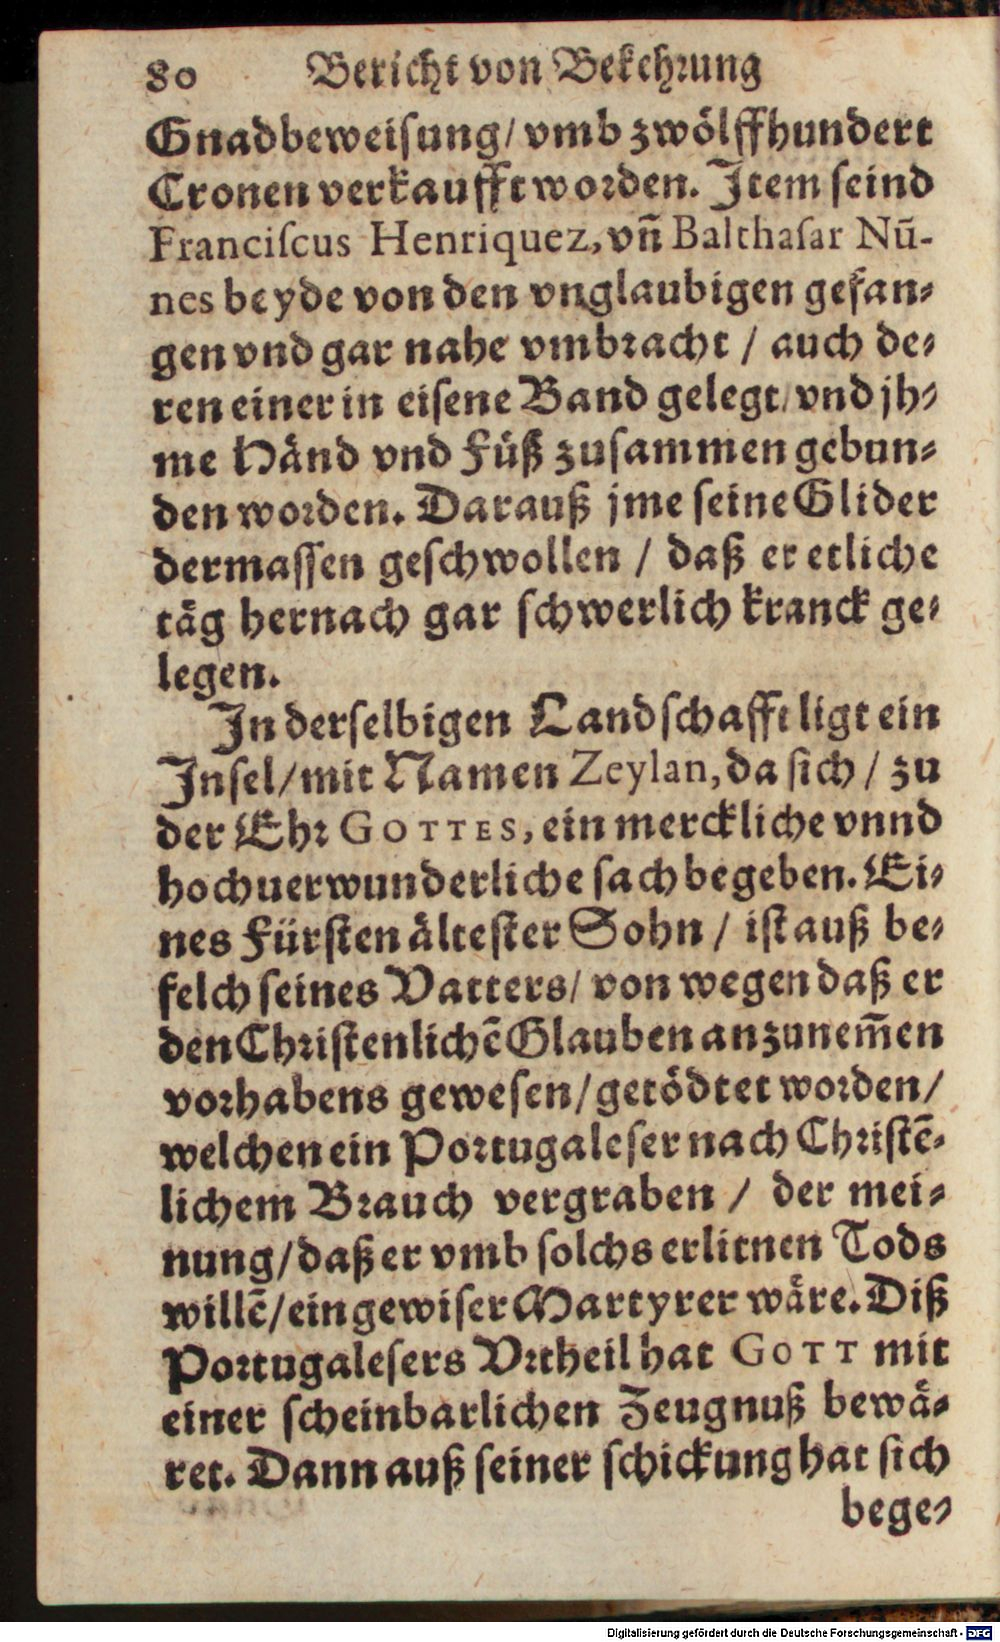 80 Bericht von Bekehrung
Gnadbeweisung/ vmb zwölffhundert
Cronen verkaufft worden. Item seind
Franciscus Henriquez, vñ Balthasar Nũ-
nes beyde von den vnglaubigen gefan-
gen vnd gar nahe vmbracht / auch de-
ren einer in eisene Band gelegt/ vnd jh-
me Händ vnd Füß zusammen gebun-
den worden. Darauß jme seine Glider
dermassen geschwollen / daß er etliche
täg hernach gar schwerlich kranck ge-
legen.
In derselbigen Landschafft ligt ein
Insel/ mit Namen Zeylan, da sich / zu
der Ehr GOTTES, ein merckliche vnnd
hochuerwunderliche sach begeben. Ei-
nes Fürsten ältester Sohn / ist auß be-
felch seines Vatters/ von wegen daß er
den Christenlichẽ Glauben anzunem̃en
vorhabens gewesen/ getödtet worden/
welchen ein Portugaleser nach Christẽ-
lichem Brauch vergraben / der mei-
nung/ daß er vmb solchs erlitnen Tods
willẽ/ ein gewiser Martyrer wäre. Diß
Portugalesers Vrtheil hat GOTT mit
einer scheinbarlichen Zeugnuß bewä-
ret. Dann auß seiner schickung hat sich
bege-
Digitalisierung gefördert durch die Deutsche Forschungsgemeinschaft - DFG